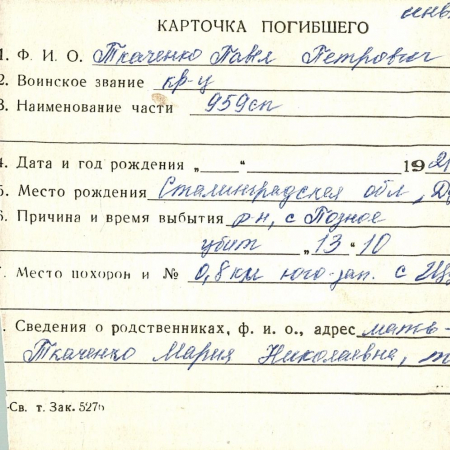 инв.
КАРТОЧКА ПОГИБШЕГО
1. Ф. И. О. Ткаченко Павел Петрович
2. Воинское звание кр-ц
3. Наименование части 959сп
4. Дата и год рождения „ “ 192
5. Место рождения Сталинградская обл,
6. Причина и время выбытия р-н, с Позное
убит „13“ 10
Место похорон и № 0,8 км юго-зап. с
Сведения о родственниках, ф. и. о., адрес мать-
Ткаченко Мария Николаевна,
Св. т. Зак. 527